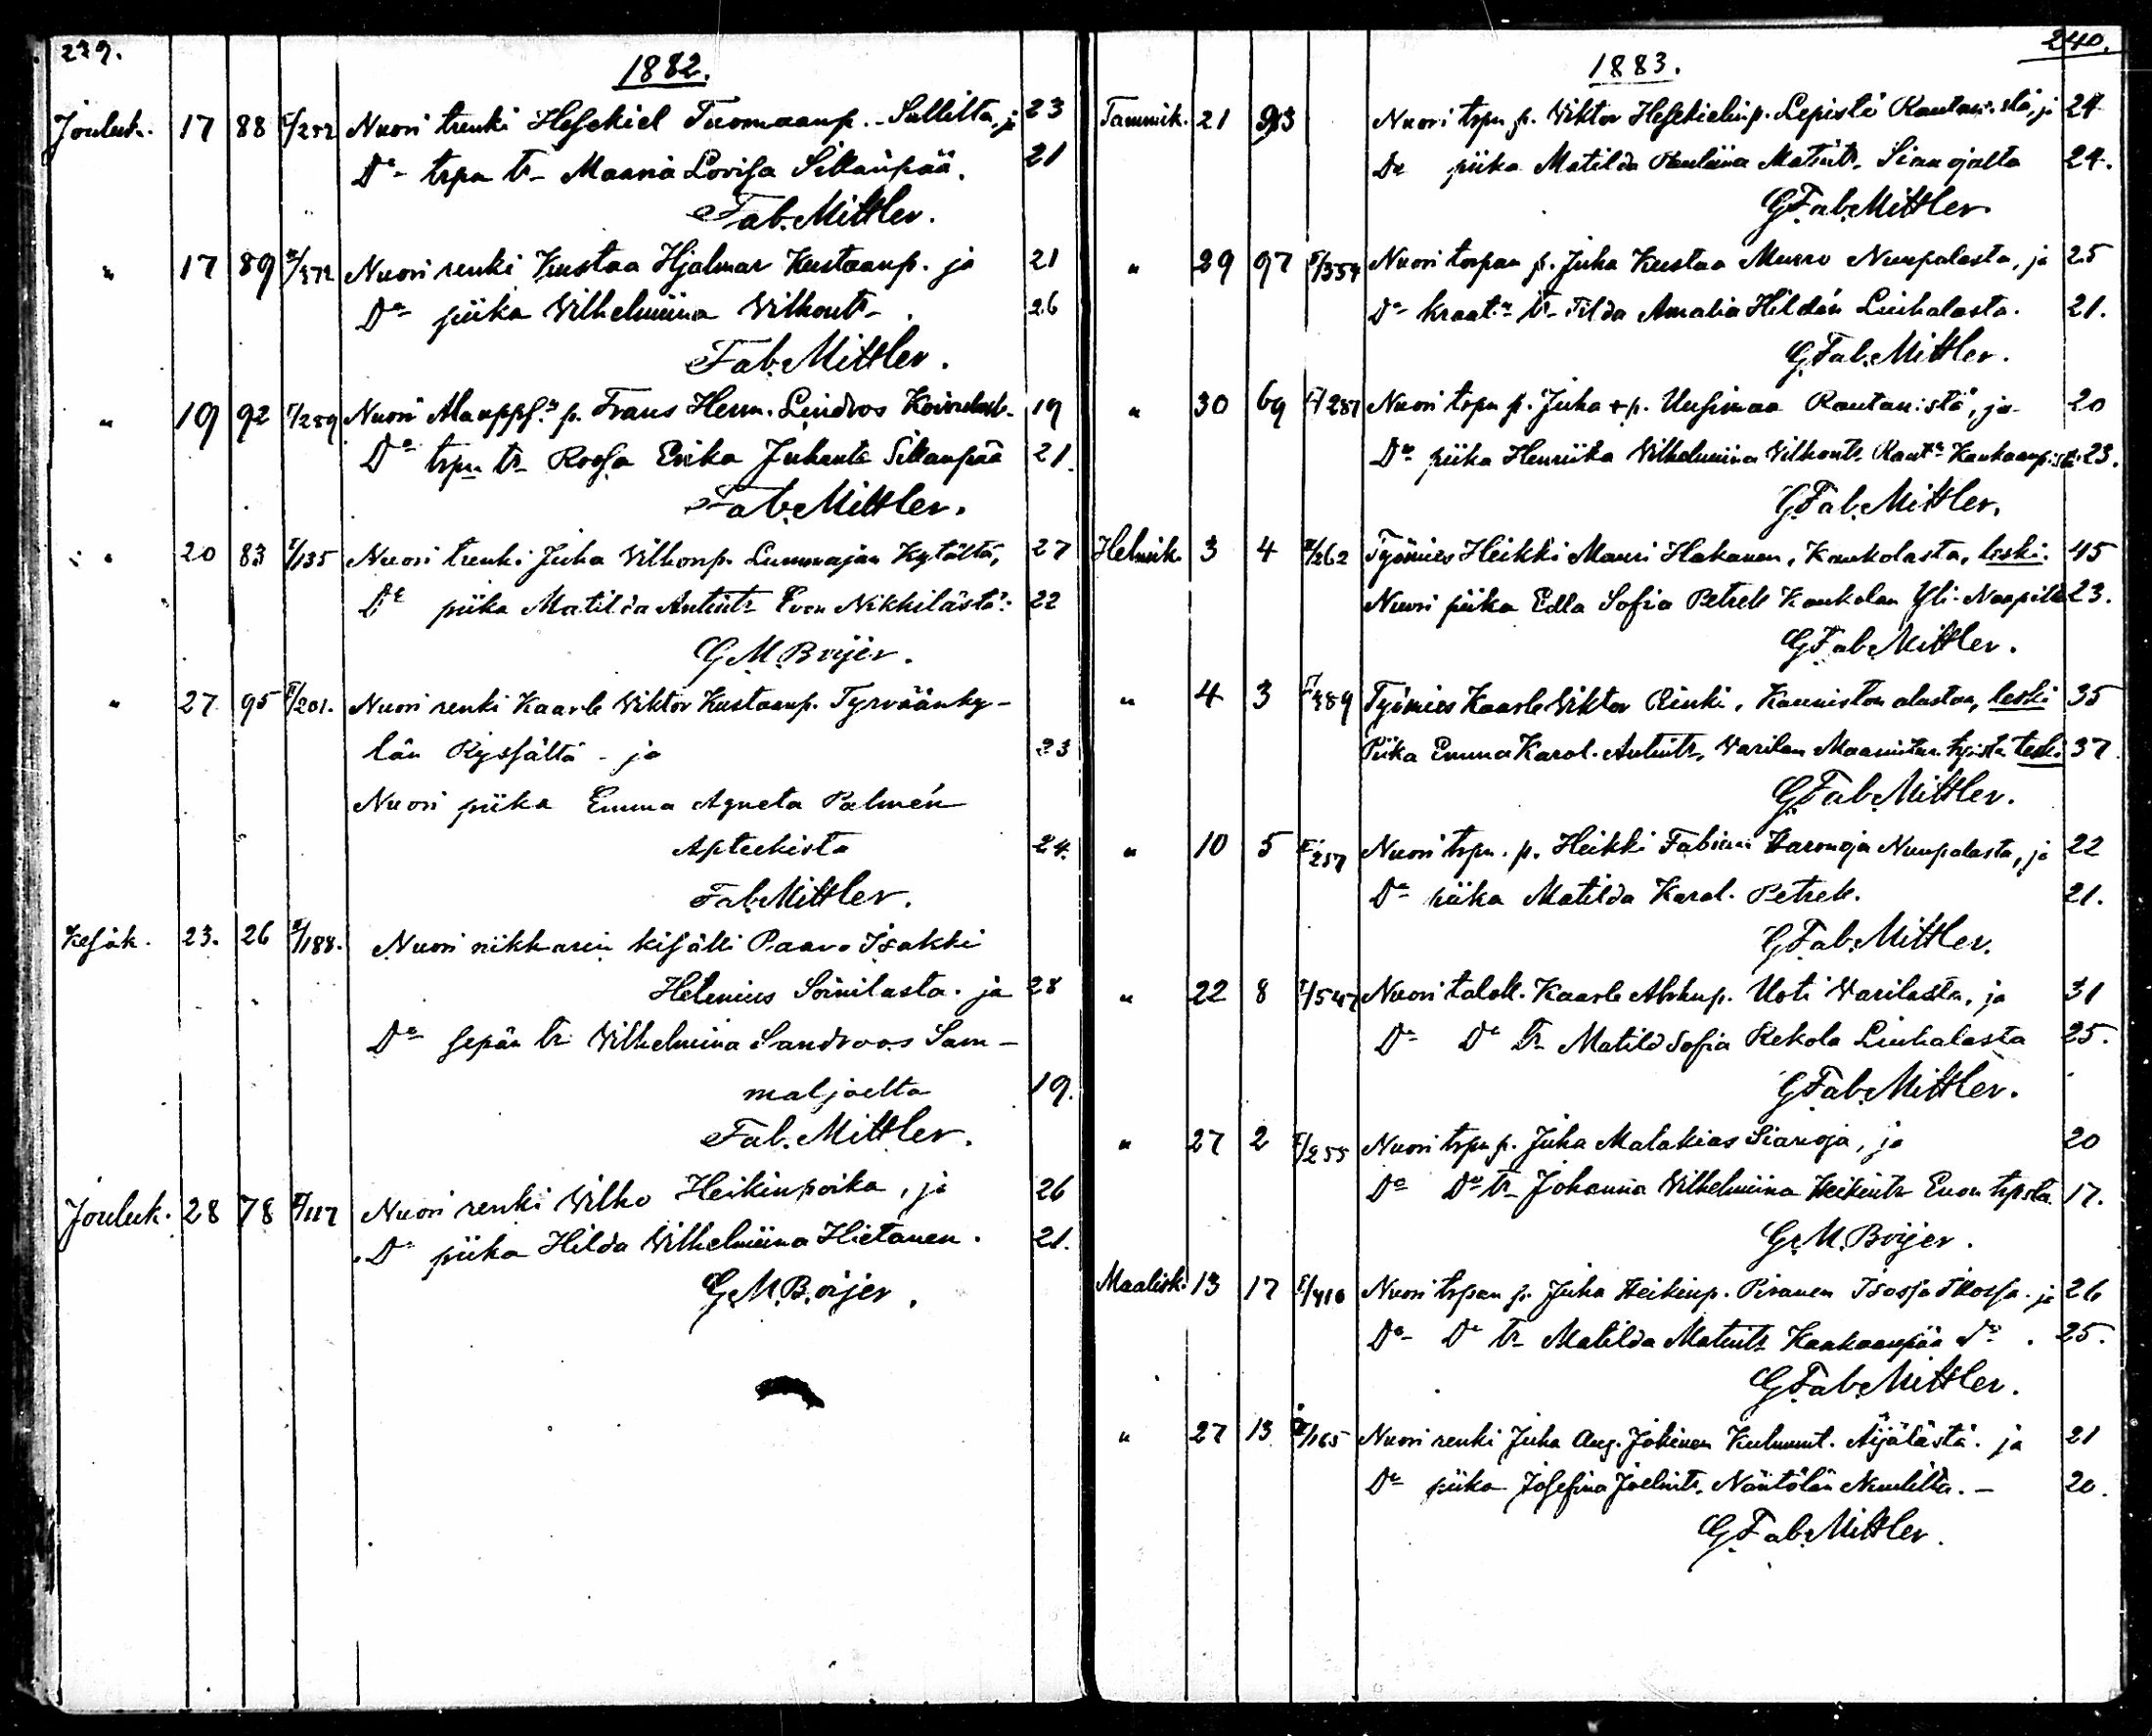 239.
1882.
Jouluk. 17 88 I/252 Nuori trenki Hesekiel Tuomaanp. Sullilta, ja 23
Do trpn tr Maaria Lovisa Sillanpää. 21
Fab. Mittler.
" 17 89 Nuori renki Kustaa Hjalmar Kustaanp. ja 21
Do piika Vilhelmiina Vilhontr. 26
Fab. Mittler.
" 19 92 I/289 Nuori p. Frans Herm. Lindroos 19
Do trpn tr Roosa Erika Juhantr Sillanpää 21.
Fab. Mittler.
" 20 83 I/135 Nuori trenki Juha Vilhonp. Lummajan Kytältä, 27
Do piika Matilda Antintr Evon Nikkilästä: 22
G.M. Boijer.
" 27 95 II/201. Nuori renki Kaarle Viktor Kustaanp. Tyrväänky-
län Ryssältä - ja 23
Nuori piika Emma Agneta Palmén
Apteekista 24.
Fab. Mittler.
Kesäk. 23. 26 I/188. Nuori nikkarin kisälli Paavo Isakki
Helenius Soinilasta. ja 28
Do sepän tr Vilhelmiina Sandroos Sam-
maljoelta 19.
Fab. Mittler.
Jouluk. 28 78 II/117 Nuori renki Vilho Heikinpoika, ja 26
Do piika Hilda Vilhelmiina Hietanen. 21.
G.M. Boijer.
240.
1883.
Tammik. 21 93 Nuori trpn p. Viktor Hesekielinp. Lepistö Rautanistä, ja 24
Do piika Matilda Matintr. Sianojalta 24.
G Fab. Mittler.
" 29 97 I/354 Nuori torpan p. Juha Kustaa Murro Nuupalasta, ja 25
Do kraat.n tr Tilda Amalia Hildén Liuhalasta. 21.
G. Fab. Mittler.
" 30 69 I/281 Nuori trpn p. Juha p. Uusimaa Rautanistä, ja 20
Do piika Henriika Vilhelmiina Vilhontr. Raut.n Kankaanp:stä. 23.
G. Fab. Mittler.
Helmik. 3 4 II/262 Työmies Heikki Mauri Hakanen, Kaukolasta, leski. 45
Nuori piika Edla Sofia Petrell Kaukolan Yli-Naapilta 23.
G Fab. Mittler.
" 4 3 389 Työmies Kaarle Viktor Kauniston alustan, leski 35
Piika Emma Karol. Antintr. Varilan leski 37.
G. Fab. Mittler.
" 10 5 257 Nuori trpn. p. Heikki Fabian Haronoja Nuupalasta, ja 22
Do piika Matilda Karol. Petrell. 21.
G Fab. Mittler.
" 22 8 I/547 Nuori taloll. Kaarle Abrhp. Uoti Varilasta, ja 31
Do Do tr Matild Sofia Rekola Liuhalasta 25.
G Fab. Mittler.
" 27 2 I/255 Nuori trpn p. Juha Malakias Sianoja, ja 20
Do Do tr Johanna Vilhelmiina Heikintr Evon trpsta. 17.
G.M. Boijer.
Maalisk. 13 17 I/410 Nuori trpan p. Juha Heikinp. Piranen ja 26
Do Do tr Matilda Matintr Kankaanpää do. 25.
G Fab. Mittler.
" 27 13 II/165 Nuori renki Juha Aug. Jokinen Kulmunt. Äijälästä. ja 21
Do piika Josefina Joelintr. Näntölän Nuutilta. - 20.
G. Fab. Mittler.